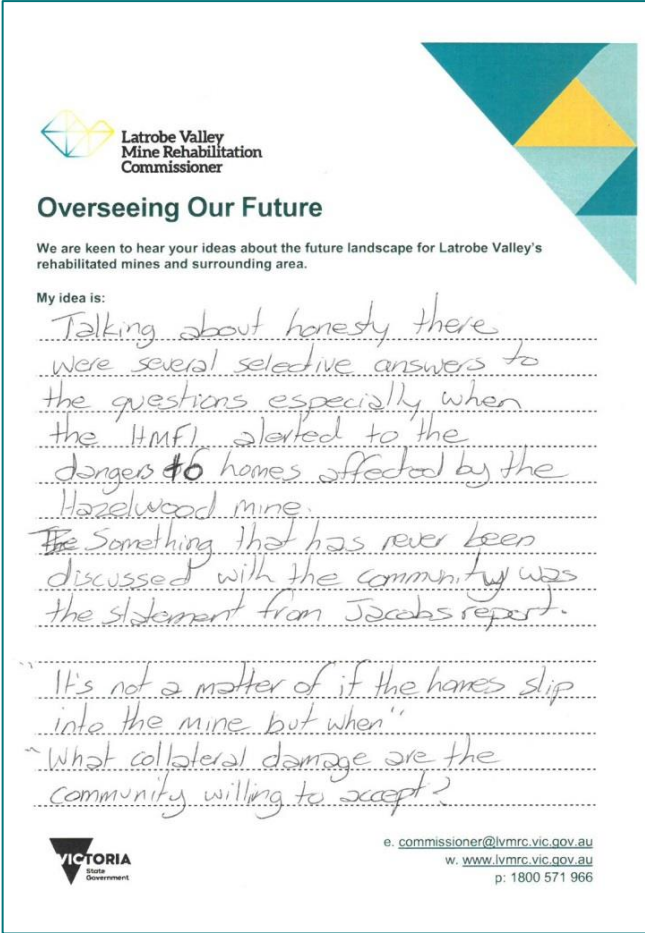 Latrobe Valley
Mine Rehabilitation
Commissioner
Overseeing Our Future
We are keen to hear your ideas about the future landscape for Latrobe Valley's
rehabilitated mines and surrounding area.
My idea is:
Talking about honesty there
were several selective answers to
the questions especially when
the HMFI alerted to the
dangers to homes affected by the
Hazelwood mine.
The Something that has never been
discussed with the community was
the statement from Jacobs report.
"It's not a matter of if the homes slip
into the mine but when"
"What collateral damage are the
community willing to accept?
VICTORIA
State
Government
e. commissioner@lvmrc.vic.gov.au
w. www.lvmrc.vic.gov.au
p: 1800 571 966